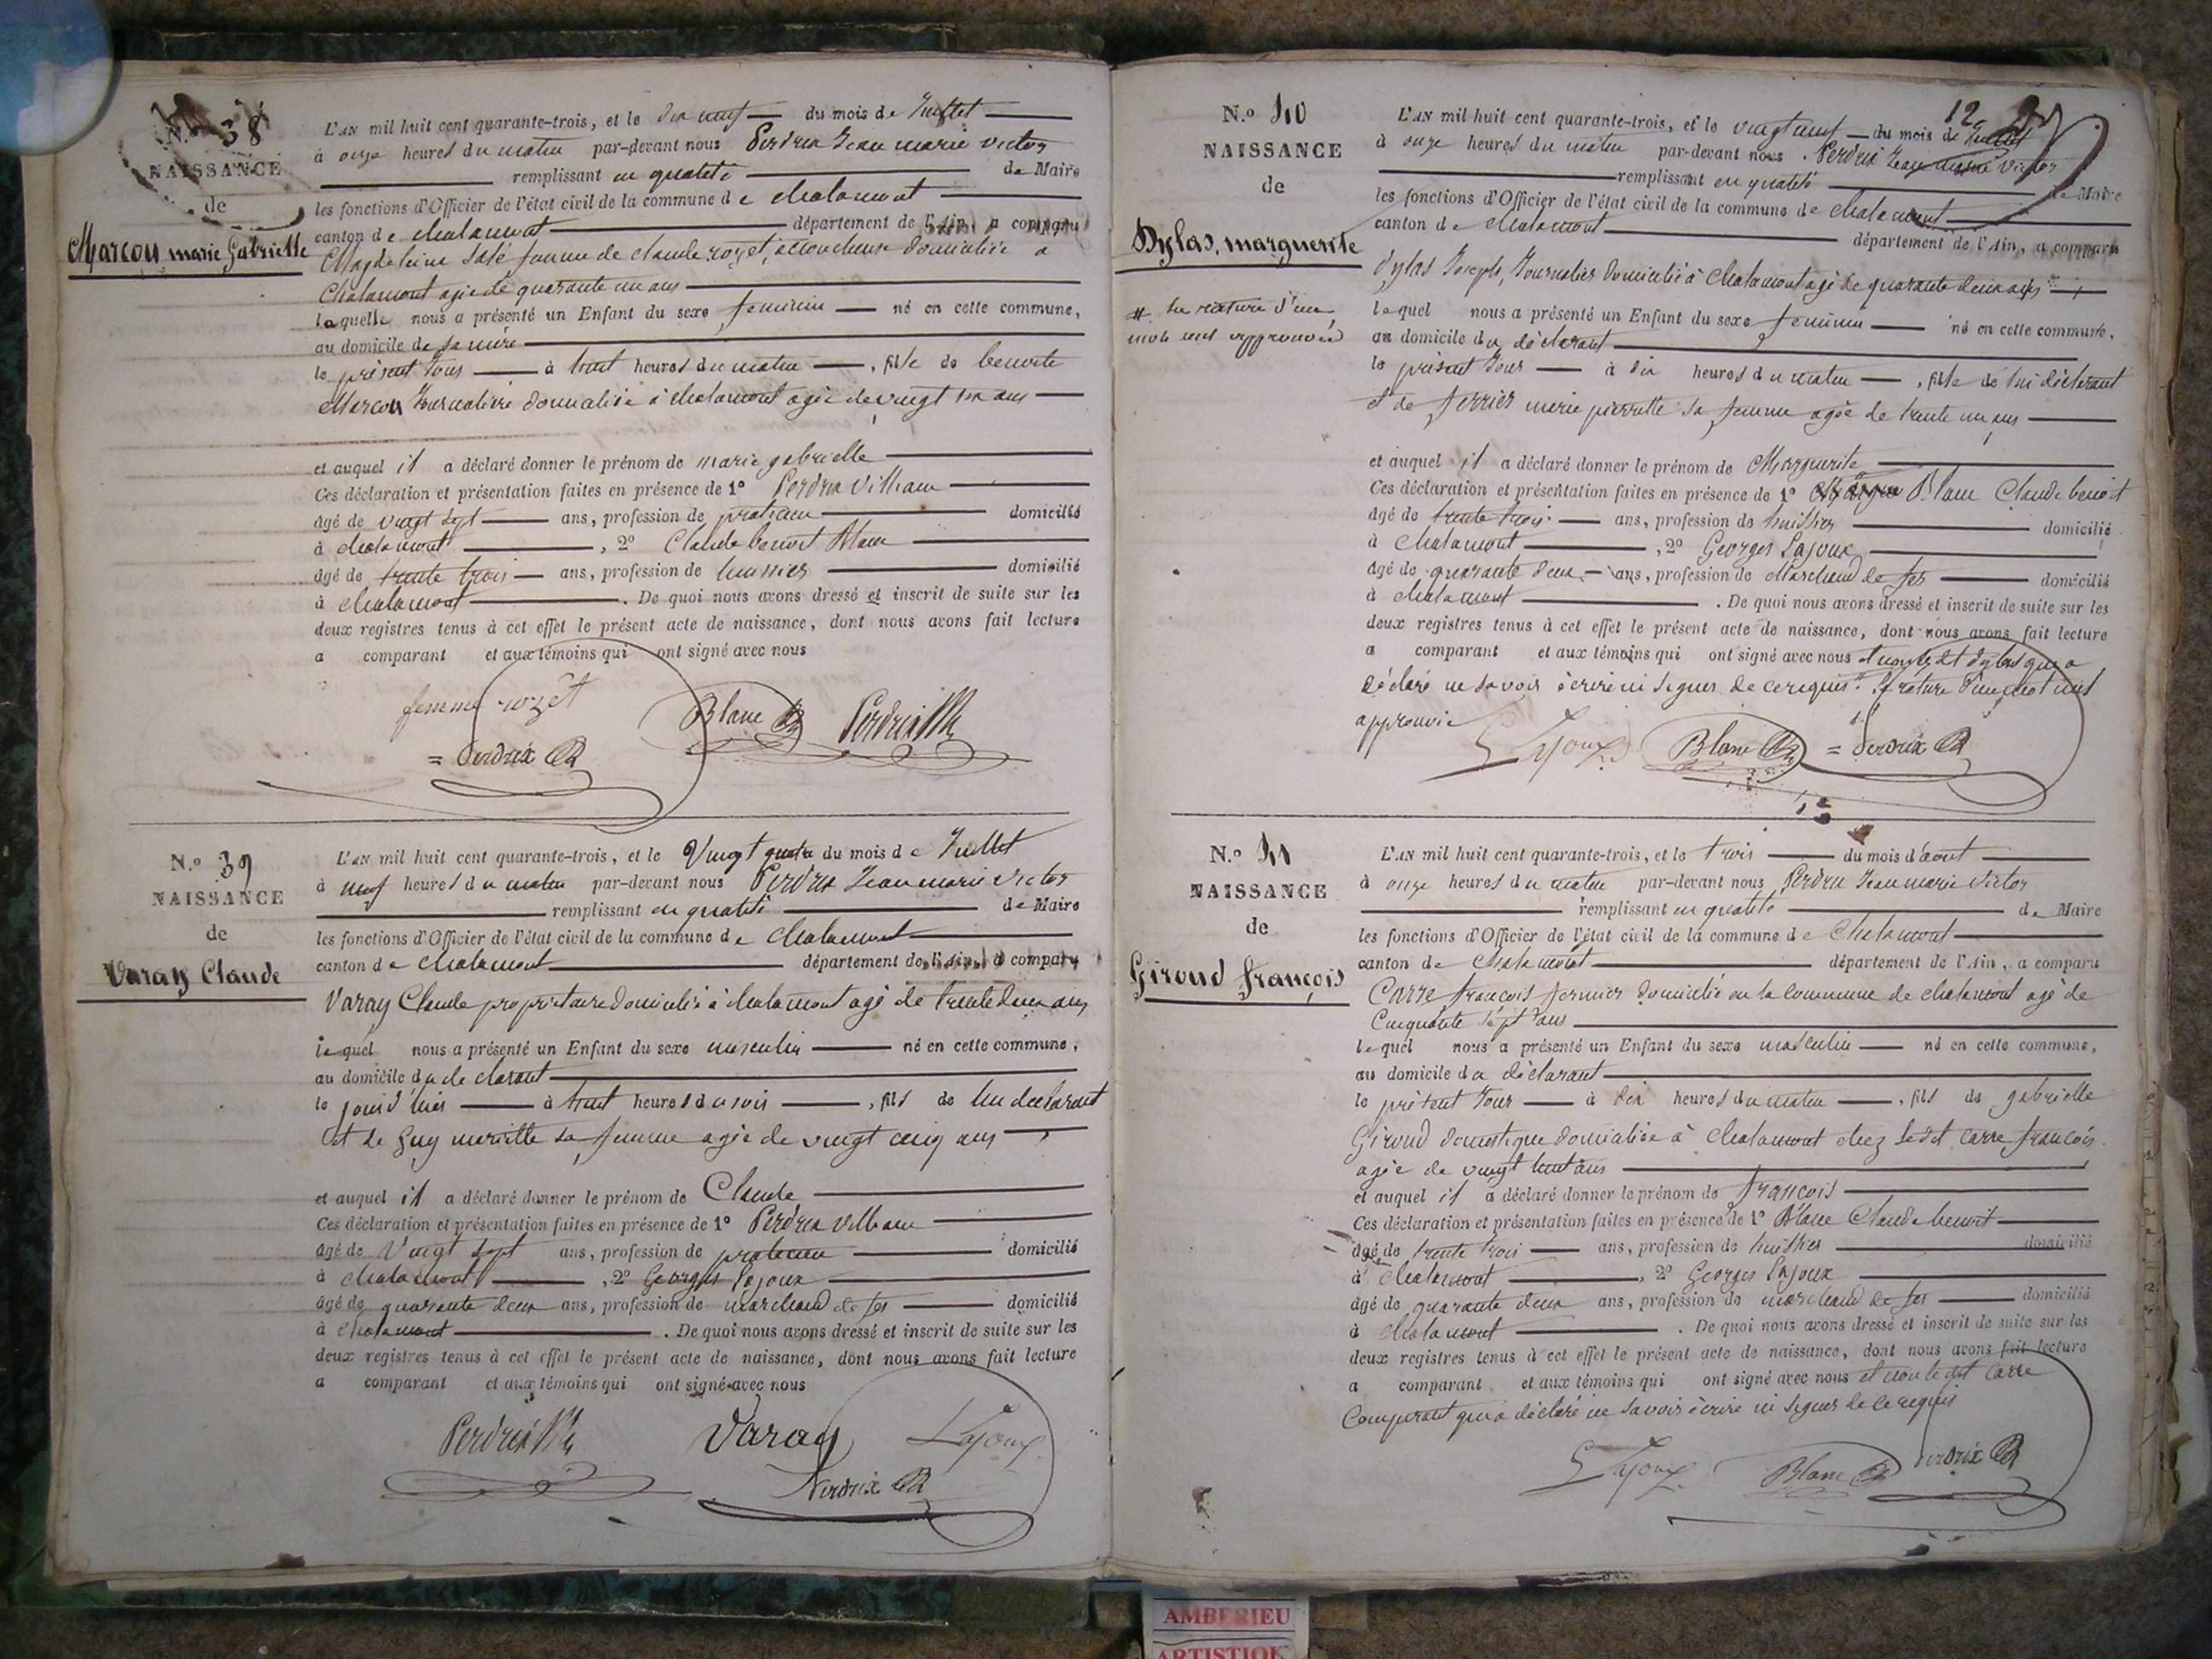 N.º 38
NAISSANCE
de
Marcon marie Gabrielle
L'AN mil huit cent quarante-trois, et le dix neuf du mois de Juillet
à onze heures du matin par-devant nous Perdrix Jean marie victor
remplissant en qualité de Maire
les fonctions d'Officier de l'état civil de la commune de chalamont
canton de chalamont département de l'Ain, a comparu
Magdeleine femme de claude rozet, accoucheuse domiciliée a
Chalamont agée de quarante un ans
laquelle nous a présenté un Enfant du sexe feminin né en cette commune,
au domicile de sa mère
le présent Jour à huit heures du matin, fille de benoite
Marcon Journalière domiciliée à chalamont agée de vingt six ans
et auquel il a déclaré donner le prénom de marie gabrielle
Ces déclaration et présentation faites en présence de 1º Perdrix villiam
âgé de vingt sept ans, profession de praticien domicilié
à chalamont, 2º Claude benoit Blanc
âgé de trente trois ans, profession de huissier domicilié
à chalamont. De quoi nous avons dressé et inscrit de suite sur les
deux registres tenus à cet effet le présent acte de naissance, dont nous avons fait lecture
a comparant et aux témoins qui ont signé avec nous
femme rozet
Blanc
Perdrix
= Perdrix
N.º 39
NAISSANCE
de
Varay Claude
L'AN mil huit cent quarante-trois, et le Vingt quatre du mois de Juillet
à neuf heures du matin par-devant nous Perdrix Jean marie victor
remplissant en qualité de Maire
les fonctions d'Officier de l'état civil de la commune de chalamont
canton de chalamont département de l'Ain, a comparu
Varay Claude propriétaire domicilié à chalamont agé de trente deux ans
lequel nous a présenté un Enfant du sexe masculin né en cette commune,
au domicile du déclarant
le jour d'hier à huit heures du soir, fils de lui déclarant
et de Guy mariette sa femme agée de vingt cinq ans
et auquel il a déclaré donner le prénom de Claude
Ces déclaration et présentation faites en présence de 1º Perdrix villiam
âgé de Vingt sept ans, profession de praticien domicilié
à chalamont, 2º Georges Lajoux
âgé de quarante deux ans, profession de marchand de fer domicilié
à chalamont. De quoi nous avons dressé et inscrit de suite sur les
deux registres tenus à cet effet le présent acte de naissance, dont nous avons fait lecture
a comparant et aux témoins qui ont signé avec nous
Perdrix
Varay
Lajoux
Perdrix
12
N.º 40
NAISSANCE
de
Dylas, marguerite
# la rature d'un
mot est approuvée
L'AN mil huit cent quarante-trois, et le vingt neuf du mois de Juillet
à onze heures du matin par-devant nous Perdrix Jean marie Victor
remplissant en qualité de Maire
les fonctions d'Officier de l'état civil de la commune de chalamont
canton de chalamont département de l'Ain, a comparu
Dylas Joseph, Journalier domicilié à Chalamont agé de quarante deux ans
lequel nous a présenté un Enfant du sexe feminin né en cette commune,
au domicile du déclarant
le présent Jour à dix heures du matin, fille de lui déclarant
et de ferrier marie pierrette sa femme agée de trente un ans
et auquel il a déclaré donner le prénom de Marguerite
Ces déclaration et présentation faites en présence de 1º Blanc Claude benoit
âgé de trente trois ans, profession de huissier domicilié
à Chalamont, 2º Georges Lajoux
âgé de quarante deux ans, profession de Marchand de fer domicilié
à chalamont. De quoi nous avons dressé et inscrit de suite sur les
deux registres tenus à cet effet le présent acte de naissance, dont nous avons fait lecture
a comparant et aux témoins qui ont signé avec nous et non ledit dylas qui a
déclaré ne savoir écrire ni signer de ce requis. la rature d'un mot est
approuvée
G Lajoux
Blanc
= Perdrix
N.º 41
NAISSANCE
de
Giroud françois
L'AN mil huit cent quarante-trois, et le trois du mois d'aout
à onze heures du matin par-devant nous Perdrix Jean marie Victor
remplissant en qualité de Maire
les fonctions d'Officier de l'état civil de la commune de Chalamont
canton de Chalamont département de l'Ain, a comparu
Carre françois fermier domicilié en la commune de chalamont agé de
Cinquante sept ans
lequel nous a présenté un Enfant du sexe masculin né en cette commune,
au domicile du déclarant
le présent Jour à dix heures du matin, fils de gabrielle
Giroud domestique domiciliée à chalamont chez ledit Carre françois.
agée de vingt huit ans
et auquel il a déclaré donner le prénom de françois
Ces déclaration et présentation faites en présence de 1º Blanc Claude benoit
âgé de trente trois ans, profession de huissier domicilié
à Chalamont, 2º Georges Lajoux
âgé de quarante deux ans, profession de marchand de fer domicilié
à chalamont. De quoi nous avons dressé et inscrit de suite sur les
deux registres tenus à cet effet le présent acte de naissance, dont nous avons fait lecture
a comparant et aux témoins qui ont signé avec nous et non ledit Carre
Comparant qui a déclaré ne savoir écrire ni signer de ce requis
G Lajoux
Blanc
Perdrix
AMBERIEU
ARTISTIQ